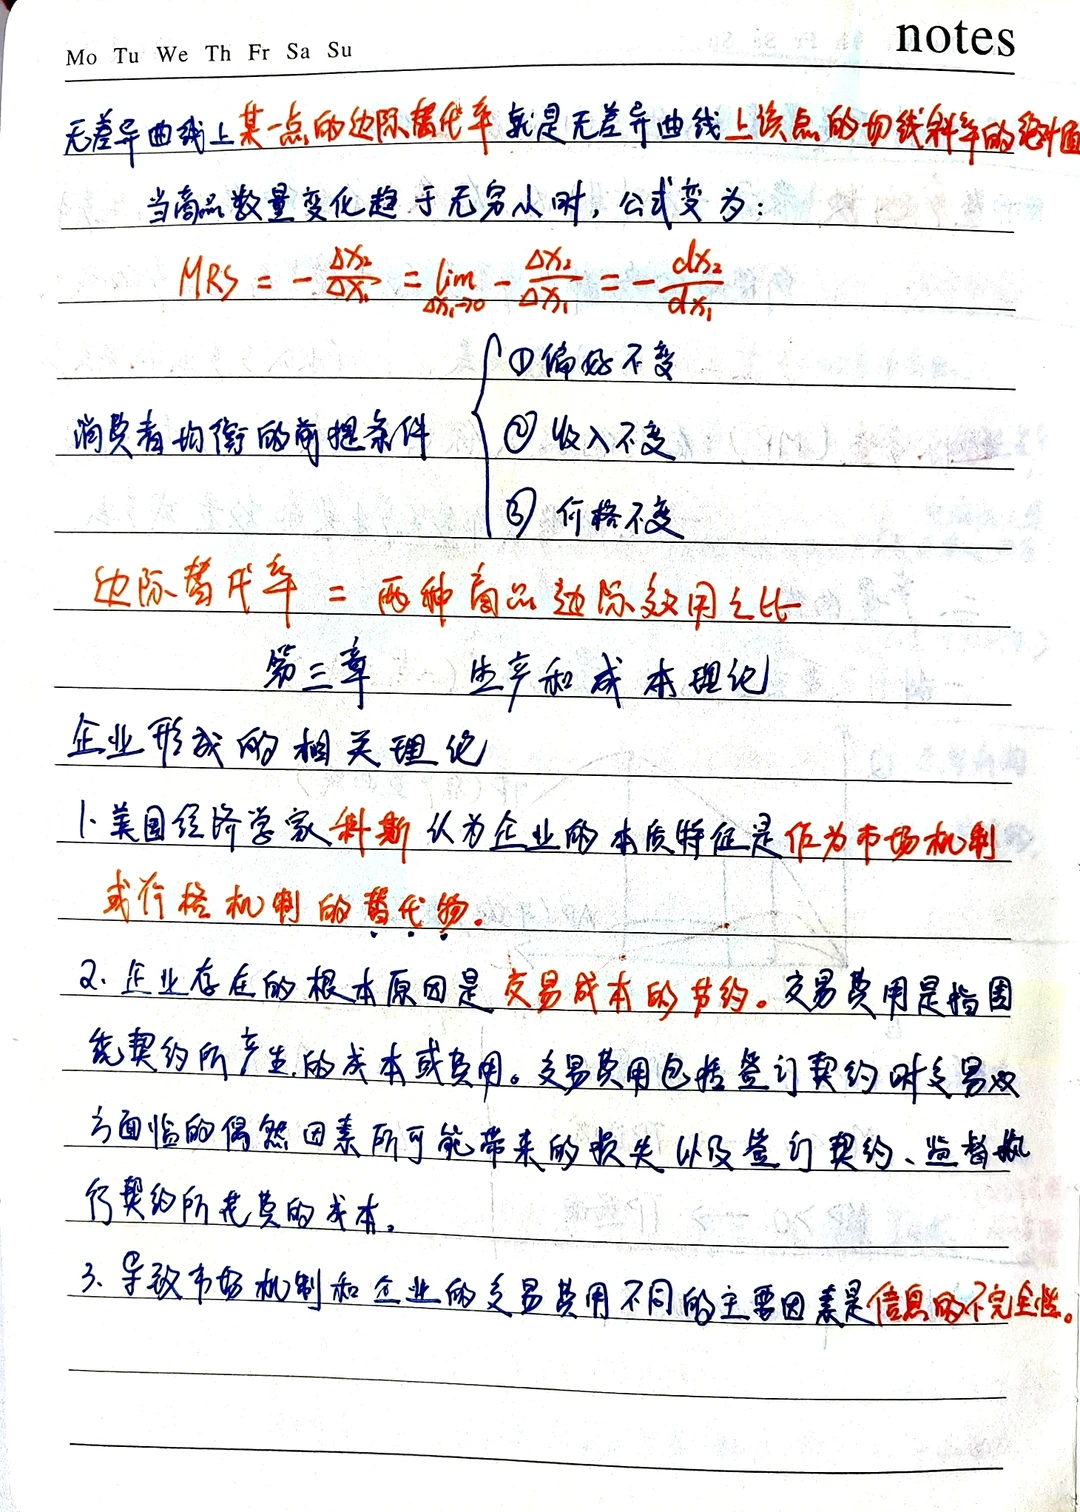 Mo Tu We Th Fr Sa Su
notes
无差异曲线上某一点的边际替代率就是无差异曲线上该点的切线斜率的绝对值
当商品数量变化趋于无穷小时，公式变为：
MRS = -Δx₂/Δx₁ = lim Δx₁→0 -Δx₂/Δx₁ = -dx₂/dx₁
① 偏好不变
消费者均衡的前提条件
② 收入不变
③ 价格不变
边际替代率 = 两种商品边际效用之比
第三章 生产和成本理论
企业形成的相关理论
1. 美国经济学家科斯认为企业的本质特征是作为市场机制
或价格机制的替代物。
2. 企业存在的根本原因是交易成本的节约。交易费用是指围
绕契约所产生的成本或费用。交易费用包括签订契约时交易双
方面临的偶然因素所可能带来的损失以及签订契约、监督执
行契约所花费的成本。
3. 导致市场机制和企业的交易费用不同的主要因素是信息的不完全性。